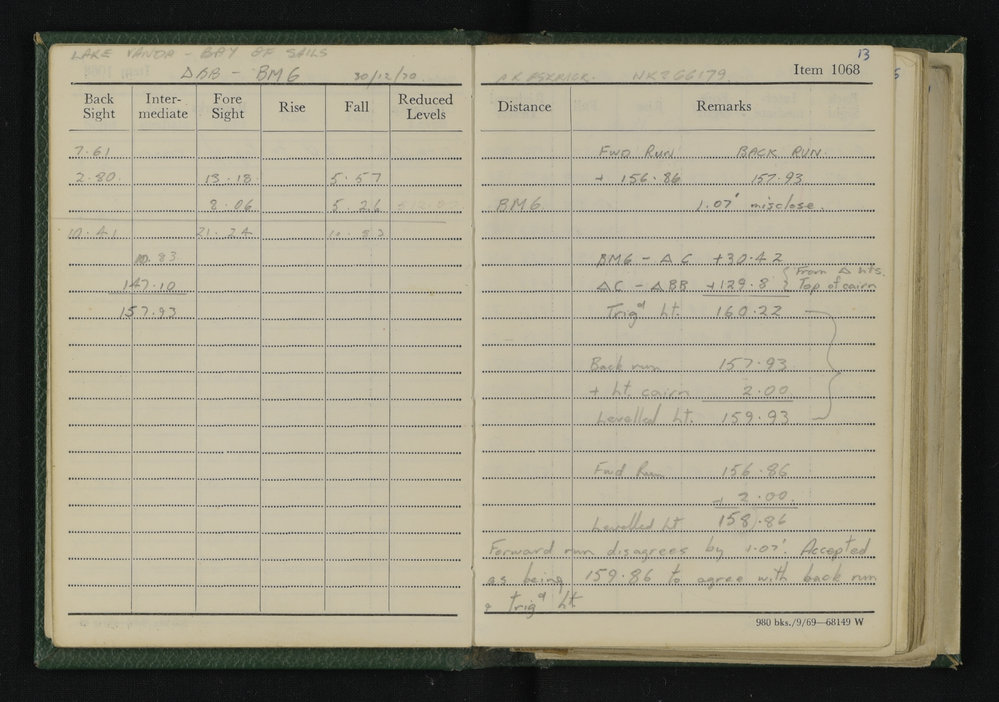 LAKE VANDA - BAY OF SAILS
Δ BB - BM6 30/12/70
Back Sight Inter-mediate Fore Sight Rise Fall Reduced Levels
7.61
2.80 13.18 5.57
8.06 5.26
10.41 21.24 10.83
10.83
147.10
157.93
13
NK266179 Item 1068
Distance Remarks
FWD RUN BACK RUN.
+ 156.86 157.93
BM6 1.07' misclose.
BM6 - Δ C +30.42 From Δ hts.
ΔC - ΔBB +129.8 Top of cairn
Trigd ht. 160.22
Back run 157.93
+ ht. cairn 2.00
Levelled ht. 159.93
Fwd Run 156.86
+ 2.00
Levelled ht 158.86
Forward run disagrees by 1.07'. Accepted
as being 159.86 to agree with back run
& Trigd ht
980 bks./9/69—68149 W